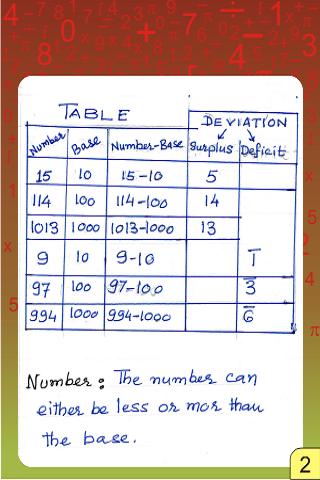 TABLE
DEVIATION
Number Base Number-Base Surplus Deficit
15 10 15-10 5
114 100 114-100 14
1013 1000 1013-1000 13
9 10 9-10 1̅
97 100 97-100 3̅
994 1000 994-1000 6̅
Number : The number can
either be less or mor than
the base.
2